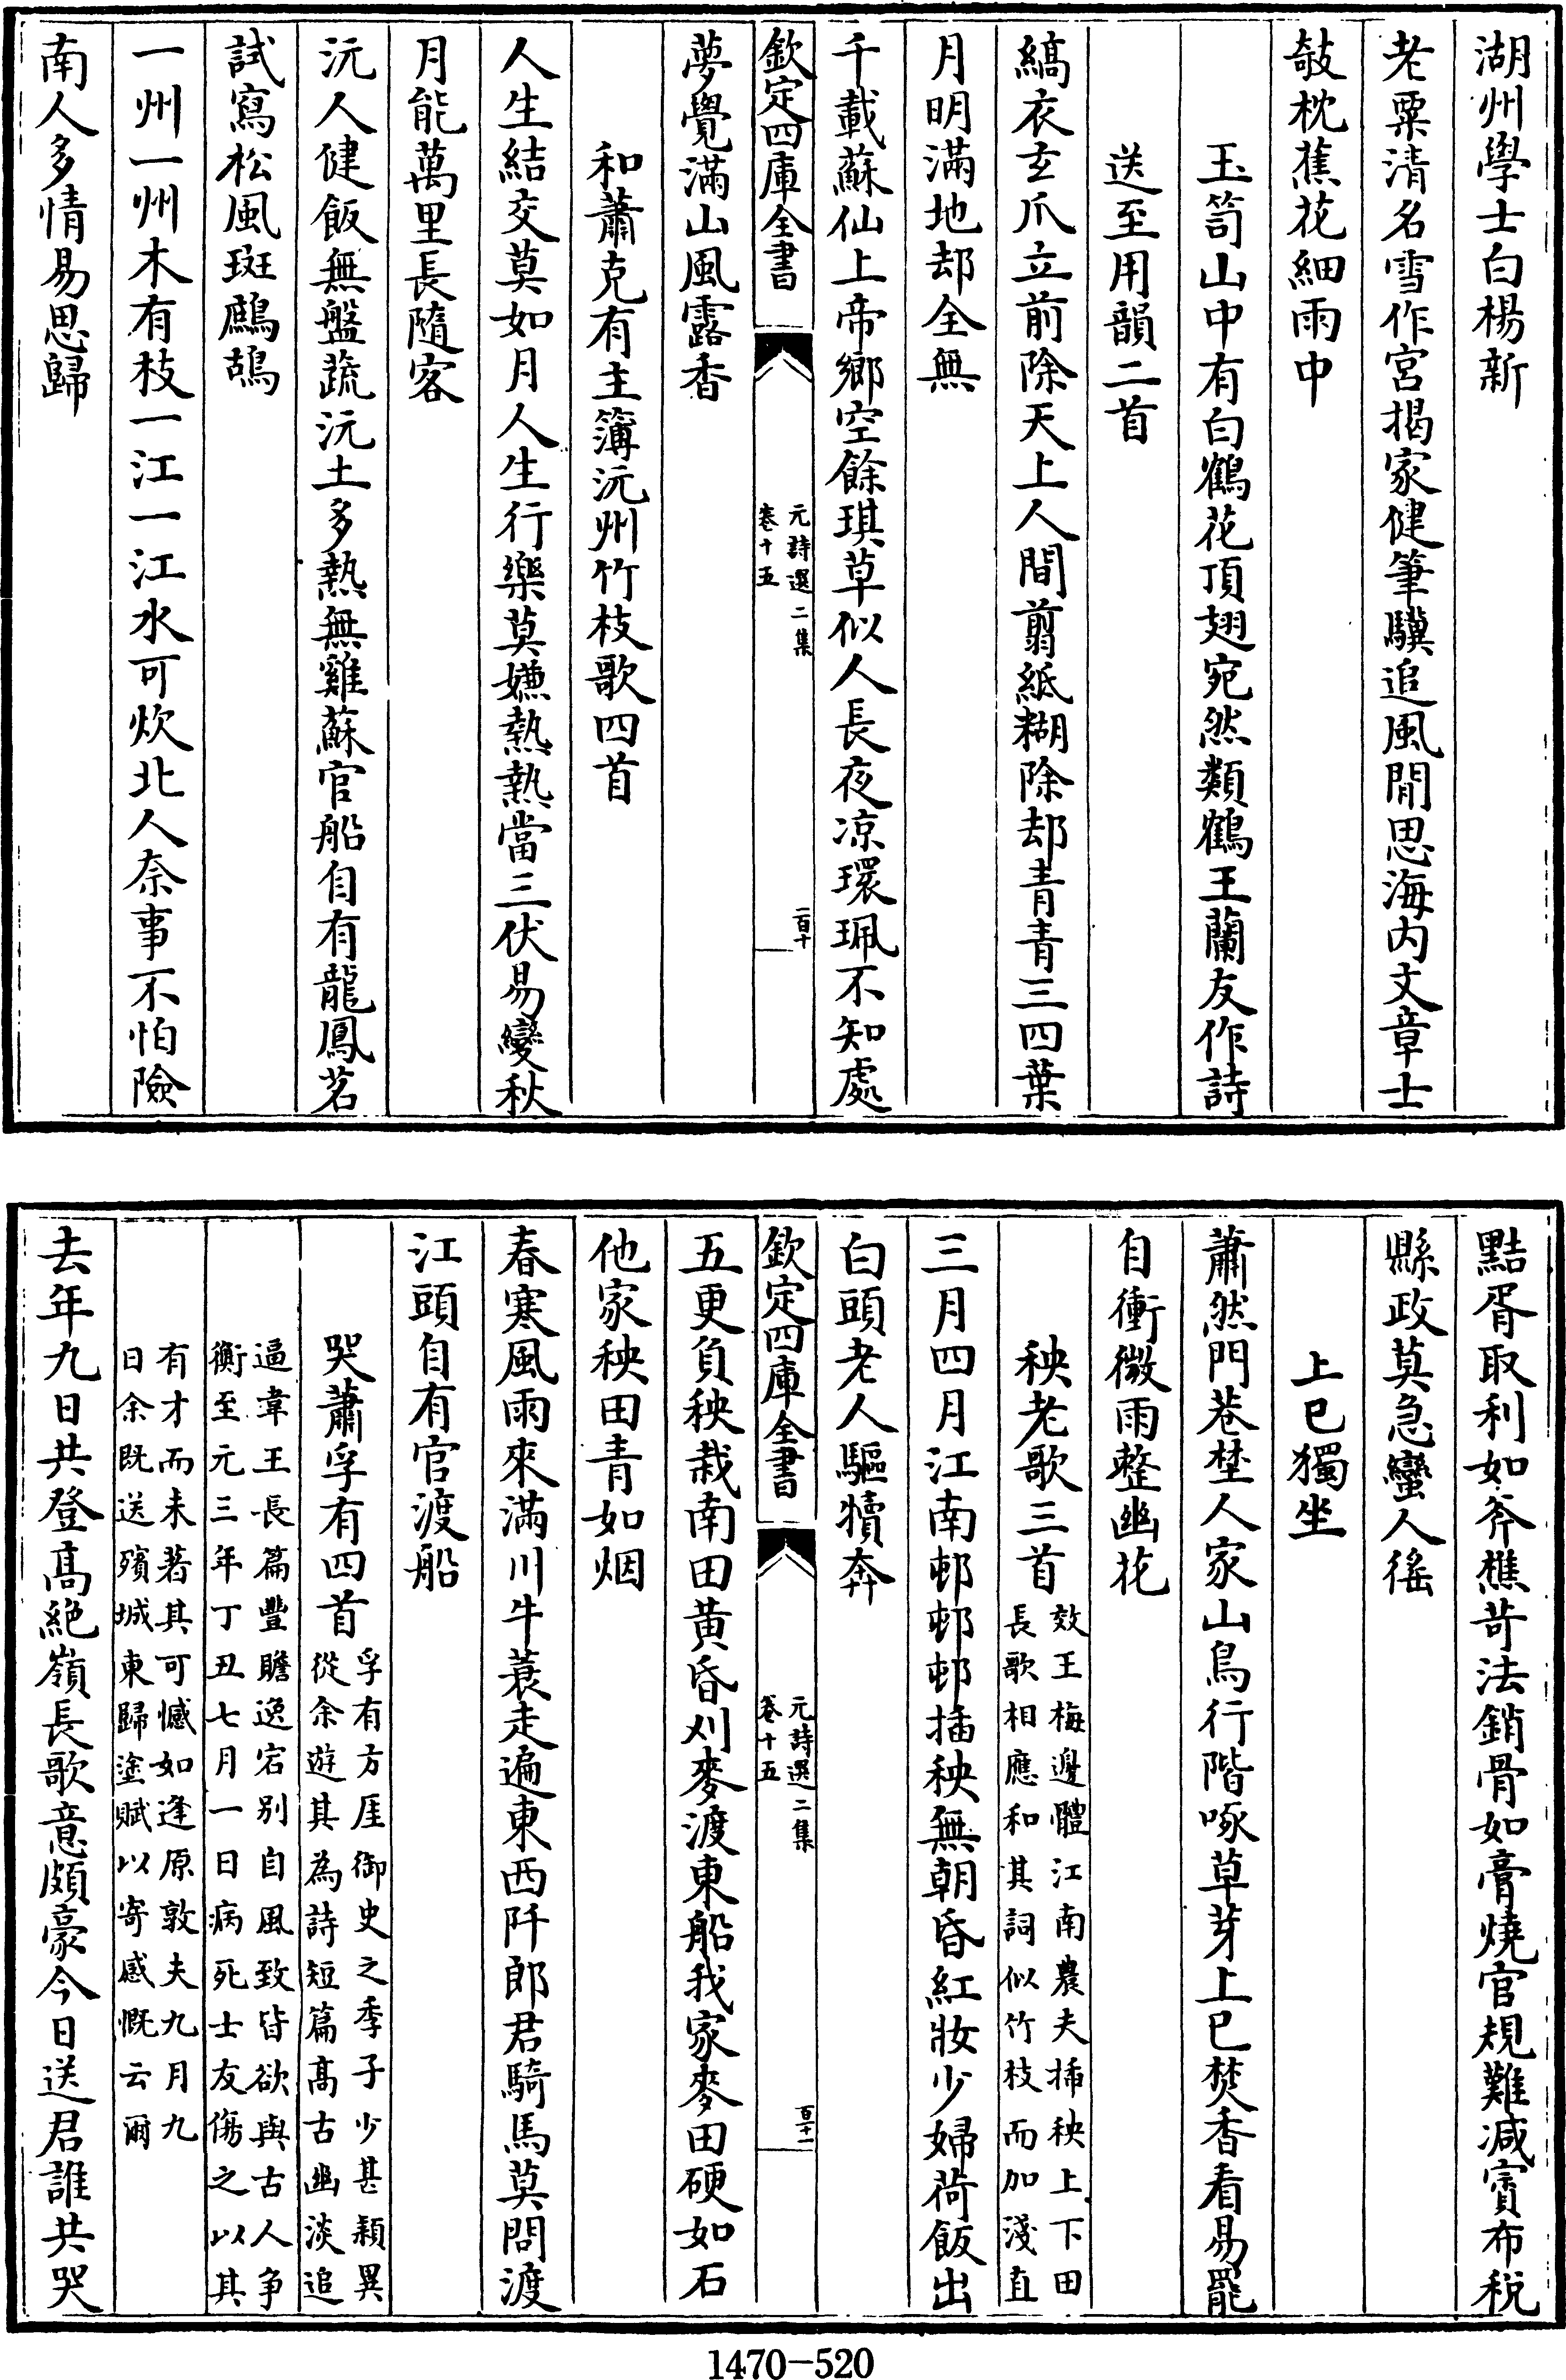 湖州學士白楊新
老粟清名雪作宮揭家健筆驥追風閒思海内文章士
攲枕蕉花細雨中
玉笥山中有白鶴花頂翅宛然類鶴王蘭友作詩
送至用韻二首
縞衣玄爪立前除天上人間翦紙糊除却青青三四葉
月明滿地却全無
千載蘇仙上帝鄉空餘琪草似人長夜凉環珮不知處
欽定四庫全書
元詩選二集
卷十五
一百十
夢覺滿山風露香
和蕭克有主簿沅州竹枝歌四首
人生結交莫如月人生行樂莫嫌熱熱當三伏易變秋
月能萬里長隨客
沅人健飯無盤蔬沅土多熱無雞蘇官船自有龍鳳茗
試寫松風斑鷓鴣
一州一州木有枝一江一江水可炊北人奈事不怕險
南人多情易思歸
黠胥取利如斧樵苛法銷骨如膏燒官規難減賓布稅
縣政莫急蠻人徭
上巳獨坐
蕭然門巷埜人家山鳥行階啄草芽上巳焚香看易罷
自衝微雨整幽花
秧老歌三首
效王梅邊體江南農夫揷秧上下田
長歌相應和其詞似竹枝而加淺直
三月四月江南邨邨邨插秧無朝昏紅妝少婦荷飯出
白頭老人驅犢奔
欽定四庫全書
元詩選二集
卷十五
百十一
五更負秧栽南田黄昏刈麥渡東船我家麥田硬如石
他家秧田青如烟
春寒風雨來滿川牛蓑走遍東西阡郎君騎馬莫問渡
江頭自有官渡船
哭蕭孚有四首
孚有方厓御史之季子少甚穎異
從余遊其為詩短篇高古幽淡追
逼韋王長篇豐贍逸宕别自風致皆欲與古人争
衡至元三年丁丑七月一日病死士友傷之以其
有才而未著其可憾如逢原敦夫九月九
日余既送殯城東歸塗賦以寄感慨云爾
去年九日共登高絶嶺長歌意頗豪今日送君誰共哭
1470-520